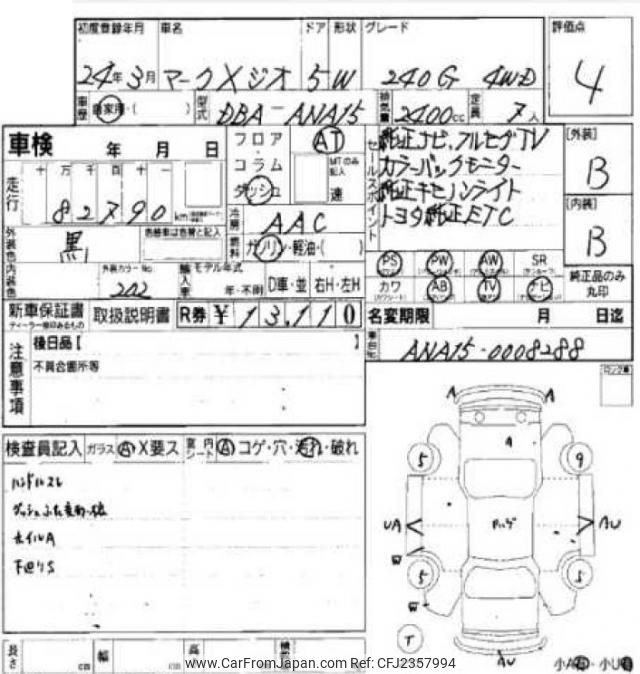 初度登録年月 車名 ドア 形状 グレード 評価点
24年3月 マークXジオ 5 W 240G 4WD 4
車歴 自家用・( ) 型式 DBA-ANA15 排気量 2400cc 定員 7人
車検 年 月 日
フロア・コラム ダッシュ AT MTのみ記入 速
セールスポイント
純正ナビ、フルセグTV
カラーバックモニター
純正キセノンライト
トヨタ純正ETC
[外装] B
[内装] B
走行 十万千百十 82790 km
冷房 AAC
燃料 ガソリン・軽油・( )
外装色 黒 色替車は色替と記入
内装色 外装カラーNo. 202
輸入車 モデル年式 年・不明 D車・並 右H・左H
PS PW AW SR
カワ AB TV ナビ
純正品のみ丸印
新車保証書 取扱説明書 R券 ¥ 13,110
ディーラー捺印あるもの
名変期限 月 日迄
車台No. ANA15-0008288
注意事項
後日品[ ]
不具合箇所等
検査員記入 ガラス A X要ス 室内シート A コゲ・穴・汚れ・破れ
ハンドルスレ
ホイルA
下廻りS
A A
A
5 9
UA AU
W
5 5
W
T
AU
長さ cm 幅 cm 高
www.CarFromJapan.com Ref: CFJ2357994